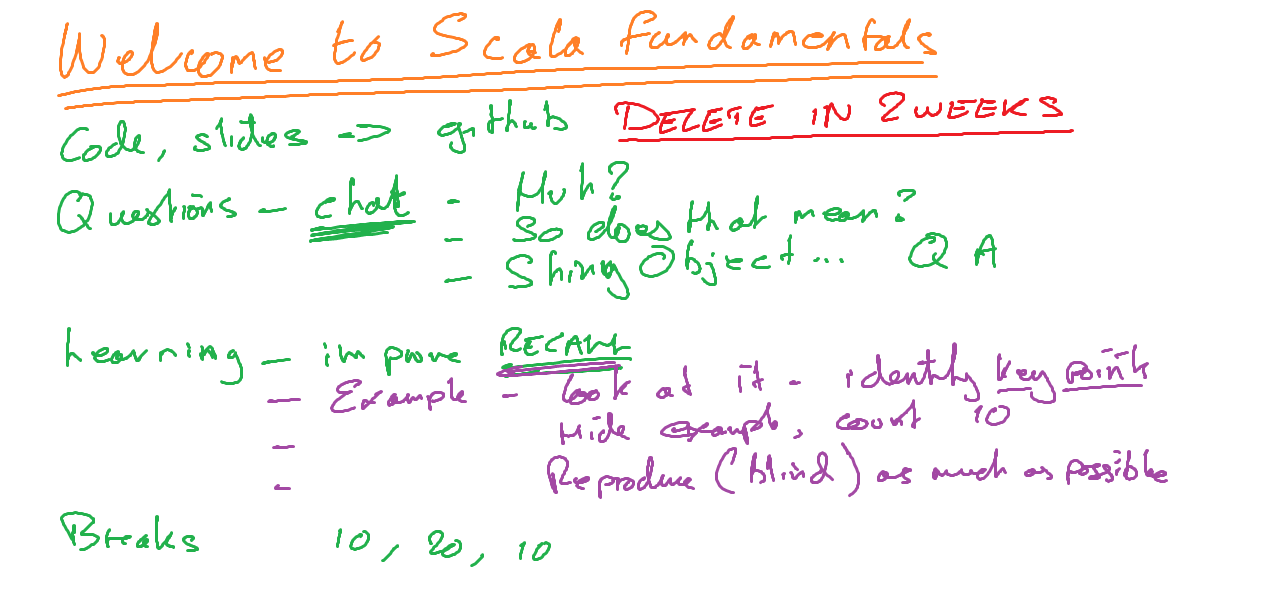 Welcome to Scala fundamentals
Code, slides -> github DELETE IN 2 WEEKS
Questions - chat - Huh?
- So does that mean?
- Shiny Object... Q A
Learning - improve RECALL
- Example - look at it - identify key points
- Hide example, count 10
- Reproduce (blind) as much as possible
Breaks 10, 20, 10